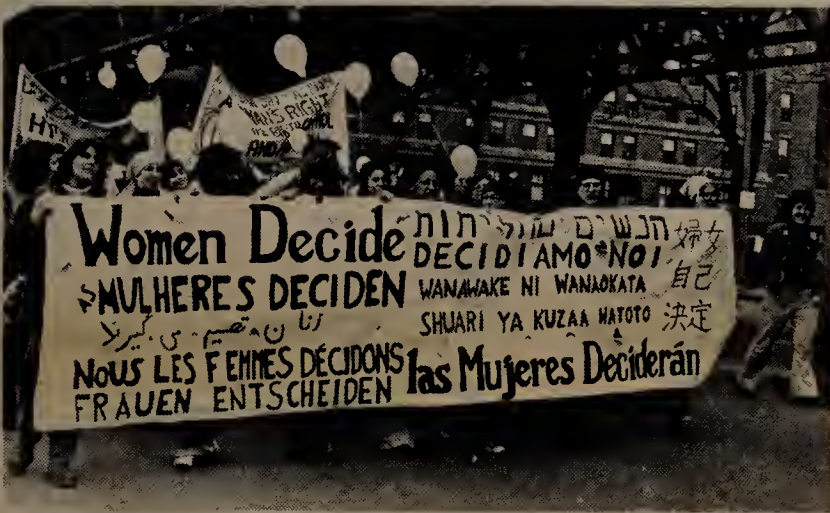 Women Decide
MULHERES DECIDEN
زنان تصمیم می گیرند
NOUS LES FEMMES DÉCIDONS
FRAUEN ENTSCHEIDEN
הנשים מחליטות
DECIDIAMO NOI
WANAWAKE NI WANAOKATA
SHUARI YA KUZAA WATOTO
las Mujeres Deciderán
婦女
自己
決定
RIGHT